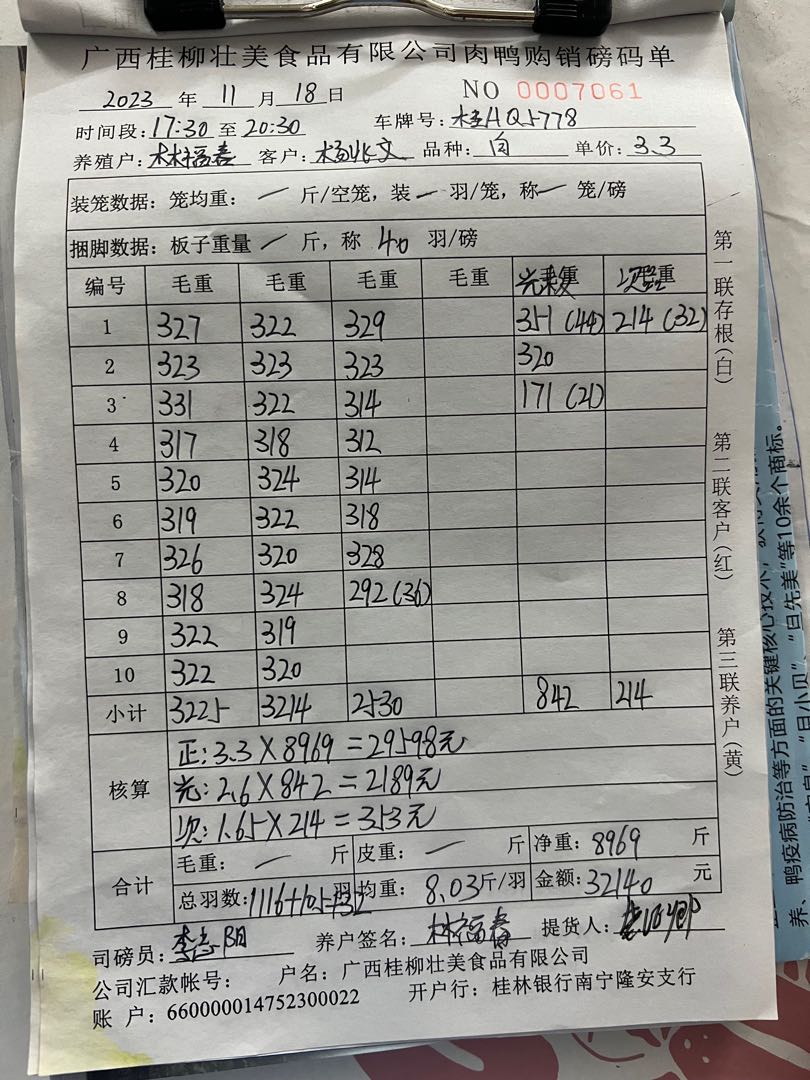 广西桂柳壮美食品有限公司肉鸭购销磅码单
2023 年 11 月 18 日 NO 0007061
时间段:17:30 至 20:30 车牌号:桂AQ5778
养殖户:林福春 客户:杨兆文 品种:白 单价:3.3
装笼数据:笼均重:一 斤/空笼,装一 羽/笼,称一 笼/磅
捆脚数据:板子重量 一 斤,称 40 羽/磅
编号 毛重 毛重 毛重 毛重
1 327 322 329 351 (44) 214 (32)
2 323 323 323 320
3 331 322 314 171 (21)
4 317 318 312
5 320 324 314
6 319 322 318
7 326 320 328
8 318 324 292 (36)
9 322 319
10 322 320
小计 3225 3214 2530 842 214
核算
正:3.3×8969=29598元
光:2.6×842=2189元
次:1.65×214=353元
合计
毛重:一 斤 皮重:一 斤 净重:8969 斤
总羽数:1116+105+32 羽 均重:8.03斤/羽 金额:32140 元
司磅员: 养户签名:林福春 提货人:
公司汇款帐号: 户名:广西桂柳壮美食品有限公司
账 户:660000014752300022 开户行:桂林银行南宁隆安支行
第一联存根(白)
第二联客户(红)
第三联养户(黄)
鸭疫病防治等方面的关键核心技术,
等10余个商标。